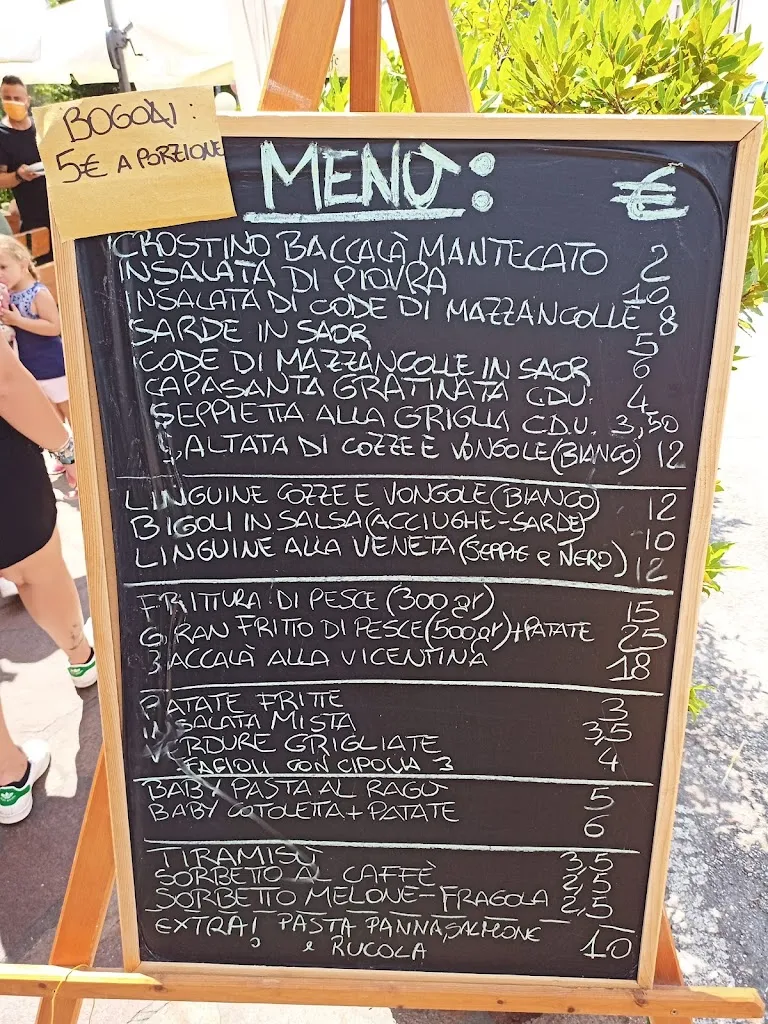 BOGOLI:
5€ A PORZIONE
MENÙ: €
CROSTINO BACCALÀ MANTECATO 2
INSALATA DI PIOVRA 10
INSALATA DI CODE DI MAZZANCOLLE 8
SARDE IN SAOR 5
CODE DI MAZZANCOLLE IN SAOR 6
CAPASANTA GRATINATA CDU. 4
SEPPIETTA ALLA GRIGLIA C.D.U. 3,50
SALTATA DI COZZE E VONGOLE (BIANCO) 12
LINGUINE COZZE E VONGOLE (BIANCO) 12
BIGOLI IN SALSA (ACCIUGHE-SARDE) 10
LINGUINE ALLA VENETA (SEPPIE e NERO) 12
FRITTURA DI PESCE (300gr) 15
GRAN FRITTO DI PESCE (500gr) + PATATE 25
BACCALÀ ALLA VICENTINA 18
PATATE FRITTE 3
INSALATA MISTA 3,5
VERDURE GRIGLIATE 4
FAGIOLI CON CIPOLLA 3
BABY PASTA AL RAGÙ 5
BABY COTOLETTA + PATATE 6
TIRAMISÙ 3,5
SORBETTO AL CAFFÈ 2,5
SORBETTO MELONE-FRAGOLA 2,5
EXTRA! PASTA PANNA, SALMONE
e RUCOLA 10